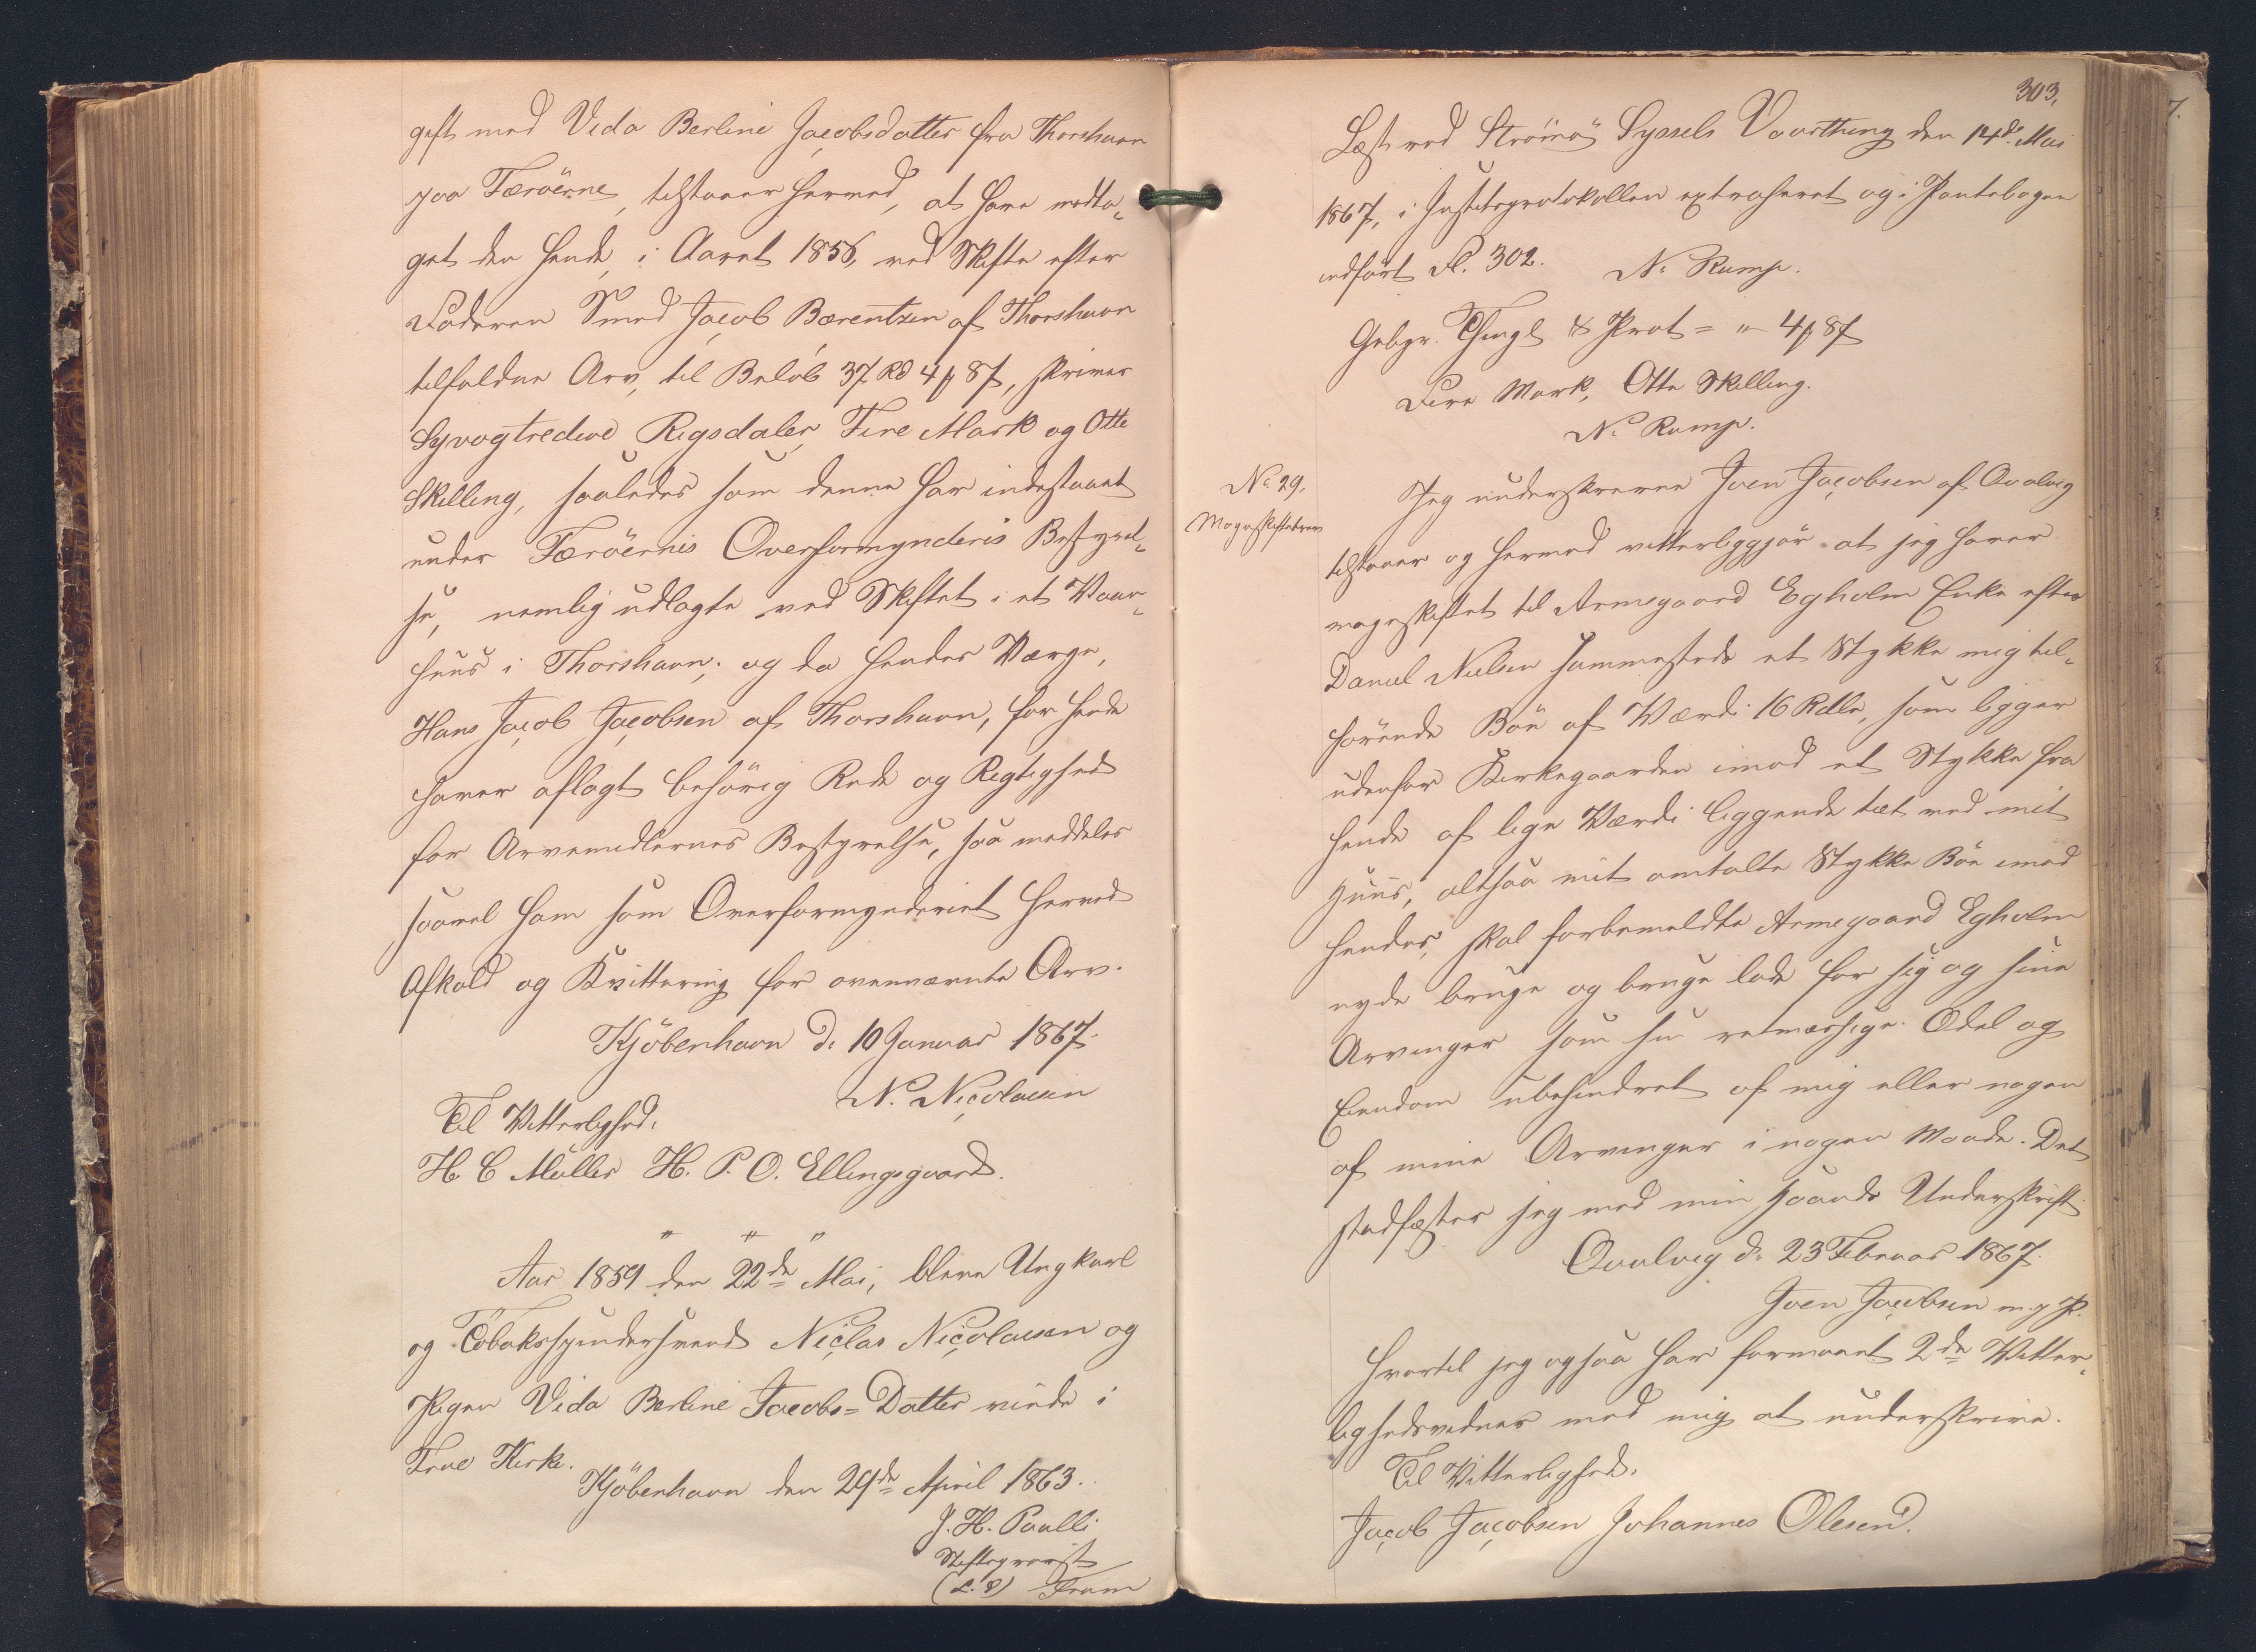 gift med Vida Berline Jacobsdatter fra Thorshavn
paa Færöerne, tilstaaer hermed, at have modta-
get den hende, i Aaret 1856, ved Skifte efter
Faderen Smed Jacob Bærentzen af Thorshavn
tilfaldne Arv, til Belöb 37 Rd 4 ₰ 8 ß, skriver
Syvogtredive Rigsdaler Fire Mark og Otte
Skilling, saaledes som denne har indestaaet
under Færöernes Overformynderis Bestyrel-
se, nemlig udlagte ved Skiftet i et Vaan-
huus i Thorshavn; og da hendes Værge,
Hans Jacob Jacobsen af Thorshavn, for hende
haver aflagt behörig Rede og Rigtighed
for Arvemidlernes Bestyrelse, saa meddeles
saavel ham som Overformynderiet herved
Afkald og Kvittering for ovennævnte Arv.
Kjöbenhavn d: 10 Januar 1867.
N. Nicolaisen
Til Vitterlighed:
H C Müller H. P. O. Ellingsgaard.
" " "
Aar 1859 den 22de Mai, bleve Ungkarl
og Tobaksspindersvend Niclas Nicolaisen og
Pigen Vida Berline Jacobs=Datter viede i
Frue Kirke.
Kjöbenhavn den 29de April 1863.
J. H. Paulli
Stiftsprovst
(L. S) Frue
303.
Læst ved Strömö Syssels Vaarthing den 14de Mai
1867, i Justitsprotokollen extraheret og i Pantebogen
indfört Fol. 302. N. Rump.
Gebyr. Thingl & Prot = " 4 ₰ 8 ß
Fire Mark, Otte Skilling.
N. Rump.
No 29.
Mageskiftebrev
Jeg underskrevne Joen Jacobsen af Qvalvig
tilstaaer og hermed vitterliggjör at jeg haver
mageskiftet til Armgaard Egholm Enke efter
Daniel Nielsen sammesteds et Stykke mig til-
hörende Böe af Værdi 16 Rdlr, som ligger
udenfor Kirkegaarden imod et Stykke fra
hende af lige Værdi liggende tæt ved mit
Huus, altsaa mit omtalte Stykke Böe imod
hendes, skal forbemeldte Armegaard Egholm
nyde bruge og bruge lade for sig og sine
Arvinger som sin retmæssige Odel og
Eiendom ubehindret af mig eller nogen
af mine Arvinger i nogen Maade. Det
stadfæster jeg med min Haands Underskrift
Qvalvig d: 23 Februar 1867.
Joen Jacobsen m. g. P.
Hvortil jeg ogsaa har formaaet 2de Vitter-
lighedsvidner med mig at underskrive.
Til Vitterlighed:
Jacob Jacobsen Johannes Olesen.